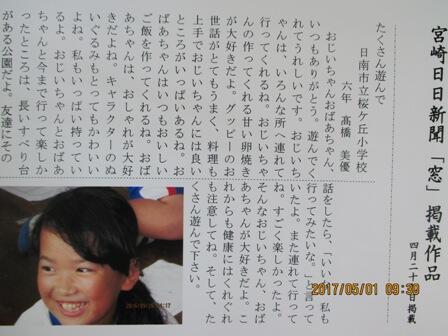 宮崎日日新聞「窓」掲載作品
四月二十日掲載
たくさん遊んで
日南市立桜ケ丘小学校
六年　髙橋　美優
おじいちゃんおばあちゃん、
いつもありがとう。遊んでく
れてうれしいです。おじいち
ゃんは、いろんな所へ連れて
行ってくれるね。おじいちゃ
んの作ってくれる甘い卵焼き
が大好きだよ。グッピーのお
世話がとてもうまく、料理も
上手でおじいちゃんには良い
ところがいっぱいあるね。お
ばあちゃんはいつもおいしい
ご飯を作ってくれるね。おば
あちゃんは、おしゃれが大好
きだよね。キャラクターのぬ
いぐるみもとってもかわいい
よね。私もいっぱい持ってい
るよ。おじいちゃんとおばあ
ちゃんと今まで行って楽しか
ったところは、長いすべり台
がある公園だよ。友達にその
話をしたら、「いいな。私も
行ってみたいな。」と言って
いたよ。また連れて行って
ね。すごく楽しかったよ。
そんなおじいちゃん、おば
あちゃんが大好きだよ。こ
れからも健康にはくれぐれ
も注意してね。そして、た
くさん遊んで下さい。
2017/05/01 09:39